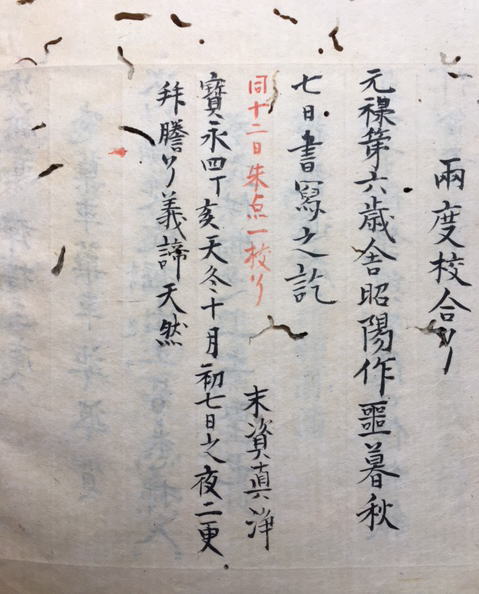 兩度校合リ
元禄第六歳舎昭陽作噩暮秋
七日書冩之訖
同十二日朱点一校リ
末資真浄
寳永四丁亥天冬十月初七日之夜二更
拜謄リ義諦天然